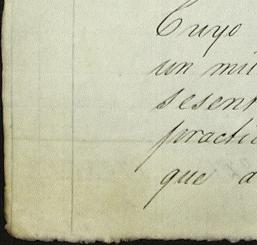 Cuyo
un mil
sesent
practic
que a